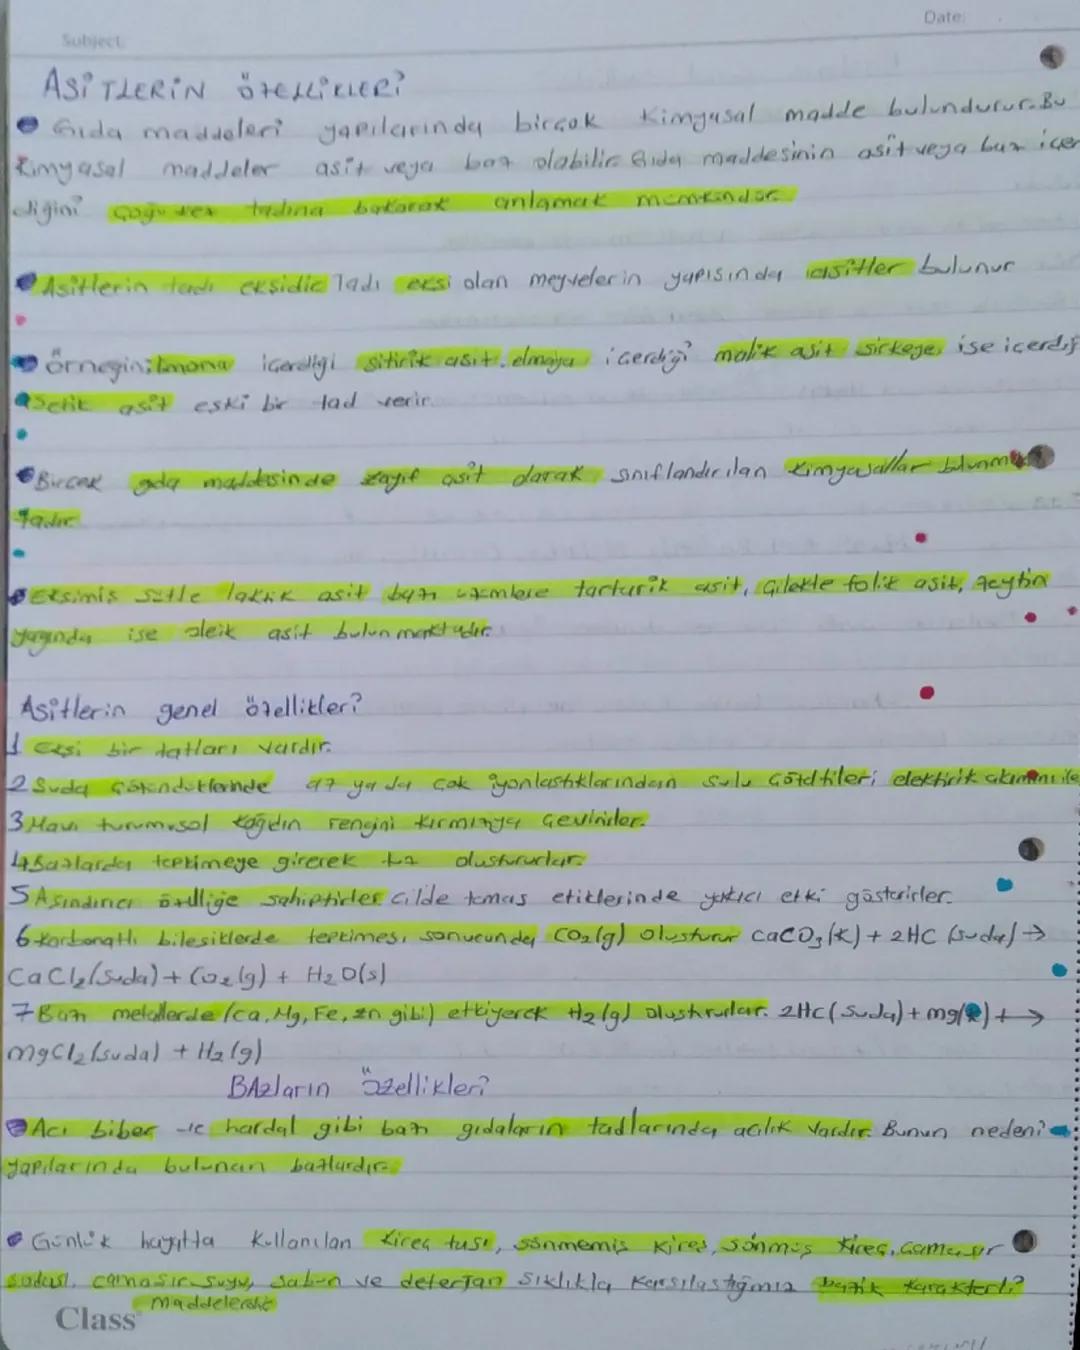 Date:
Subject:
ASİTLERİN ÖZELLİKLERİ
Gıda maddeleri yapılarında birçok kimyasal madde bulundurur. Bu
kimyasal maddeler asit veya baz olabilir Gıda maddesinin asit veya baz içer
diğini çoğu kez tadına bakarak anlamak mümkündür.
Asitlerin tadı ekşidir Tadı ekşi olan meyvelerin yapısında asitler bulunur
Örneğin; limona içerdiği sitirik asit, elmaya içerdiği malik asit sirkeye, ise içerdiğ
asetik asit eski bir tad verir.
Birçok gıda maddesinde zayıf asit olarak sınıflandırılan kimyasallar bulunmak
tadır
Eksimis sütle laktik asit bazı üzümlere tarturik asit, Çilekte folik asit, zeytin
yağında ise oleik asit bulunmaktadır.
Asitlerin genel özellikleri
1 Eksi bir tatları vardır.
2 Suda çözündüklerinde az ya da çok iyonlaştıklarından sulu çözeltileri elektirik akımını ile
3 Mavi turumusol kağıdın rengini kırmızıya çevirirler.
4 Bazlarda tepkimeye girerek tuz oluştururlar.
5 Asındırıcı özelliğe sahiptirler cilde temas etiklerinde yakıcı etki gösterirler.
6 karbonatlı bileşiklerde tepkimesi sonucunda CO2(g) oluşturur CaCO3(k) + 2HC (suda) →
CaCl2(suda) + CO2(g) + H2O(s)
7 Bazı metallerde (Ca, Mg, Fe, zn gibi) etkiyerek H2(g) oluştururlar. 2HC(suda) + mg(k) + →
mgCl2(suda) + H2(g)
BAzların özellikleri
Acı biber ve hardal gibi bazı gıdaların tadlarında acılık vardır Bunun nedeni
yapılarında bulunan bazlardır.
Günlük hayatta kullanılan kireç tası, sönmemiş kireç, sönmüş kireç, çamaşır
sodası, camasır suyu, sabun ve deterjan sıklıkla karsılastığımız bazik karakterli
maddelerdir
Class